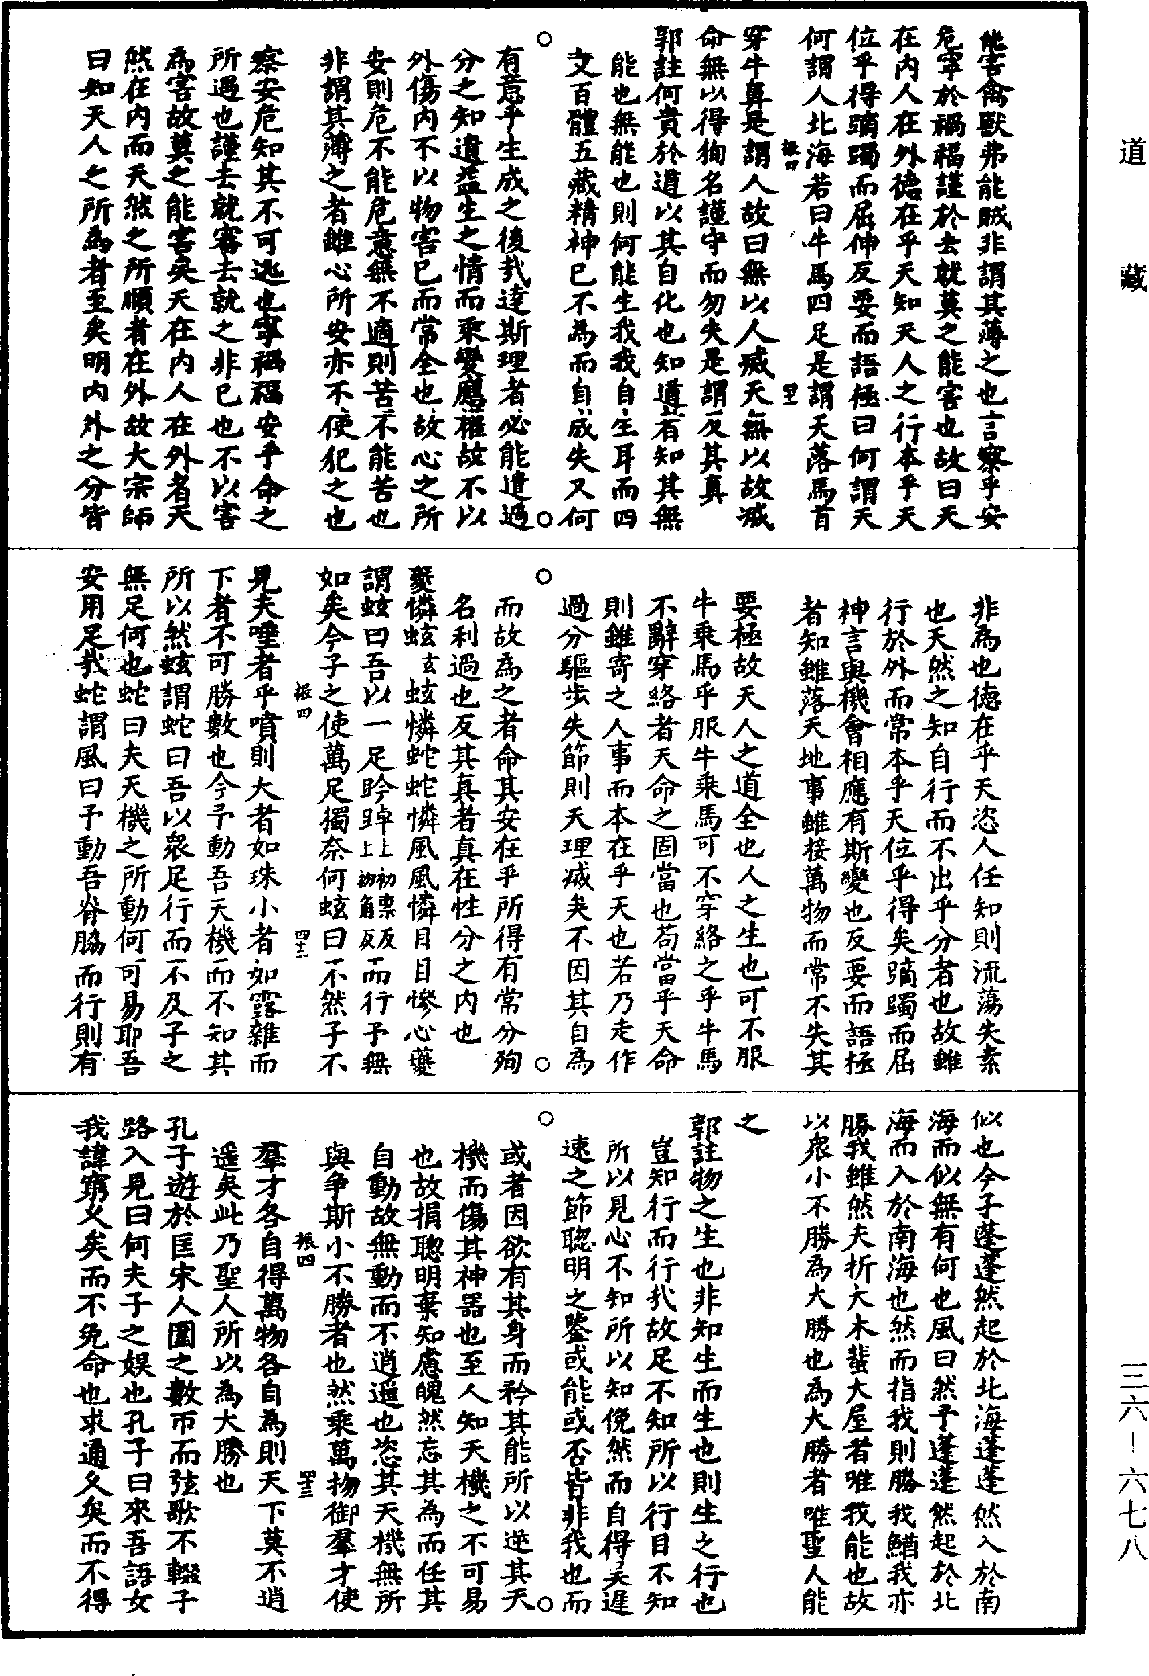 道藏
三六—六七八
能害禽獸弗能賊非謂其薄之也言察乎安
危寧於禍福謹於去就莫之能害也故曰天
在內人在外德在乎天知天人之行本乎天
位乎得蹢躅而屈伸反要而語極曰何謂天
何謂人北海若曰牛馬四足是謂天落馬首
穿牛鼻是謂人故曰無以人滅天無以故滅
命無以得狥名謹守而勿失是謂反其真
郭註何貴於道以其自化也知道者知其無
能也無能也則何能生我我自生耳而四
支百體五藏精神已不為而自成矣又何
有意乎生成之後哉達斯理者必能遣過
分之知遺益生之情而乘變應權故不以
外傷內不以物害己而常全也故心之所
安則危不能危意無不適則苦不能苦也
非謂其薄之者雖心所安亦不使犯之也
察安危知其不可逃也寧禍福安乎命之
所遇也謹去就審去就之非己也不以害
為害故莫之能害矣天在內人在外者天
然在內而天然之所順者在外故大宗師
曰知天人之所為者至矣明內外之分皆
非為也德在乎天恣人任知則流蕩失素
也天然之知自行而不出乎分者也故雖
行於外而常本乎天位乎得矣蹢躅而屈
神言與機會相應有斯變也反要而語極
者知雖落天地事雖接萬物而常不失其
要極故天人之道全也人之生也可不服
牛乘馬乎服牛乘馬可不穿絡之乎牛馬
不辭穿絡者天命之固當也苟當乎天命
則雖寄之人事而本在乎天也若乃走作
過分驅步失節則天理滅矣不因其自為
而故為之者命其安在乎所得有常分殉
名利過也反其真者真在性分之內也
夔憐蚿蚿憐蛇蛇憐風風憐目目憐心夔
謂蚿曰吾以一足趻上初稟反踔上初角反而行予無
如矣今子之使萬足獨奈何蚿曰不然子不
見夫唾者乎噴則大者如珠小者如霧雜而
下者不可勝數也今予動吾天機而不知其
所以然蚿謂蛇曰吾以衆足行而不及子之
無足何也蛇曰夫天機之所動何可易耶吾
安用足哉蛇謂風曰予動吾脊脇而行則有
似也今子蓬蓬然起於北海蓬蓬然入於南
海而似無有何也風曰然予蓬蓬然起於北
海而入於南海也然而指我則勝我鰌我亦
勝我雖然夫折大木蜚大屋者唯我能也故
以衆小不勝為大勝也為大勝者唯聖人能
之
郭註物之生也非知生而生也則生之行也
豈知行而行哉故足不知所以行目不知
所以見心不知所以知俛然而自得矣遲
速之節聰明之鑒或能或否皆非我也而
或者因欲有其身而矜其能所以逆其天
機而傷其神器也至人知天機之不可易
也故捐聰明棄知慮魄然忘其為而任其
自動故無動而不逍遙也恣其天機無所
與爭斯小不勝者也然乘萬物御羣才使
羣才各自得萬物各自為則天下莫不逍
遥矣此乃聖人所以為大勝也
孔子遊於匡宋人圍之數帀而弦歌不輟子
路入見曰何夫子之娛也孔子曰來吾語女
我諱窮久矣而不免命也求通久矣而不得